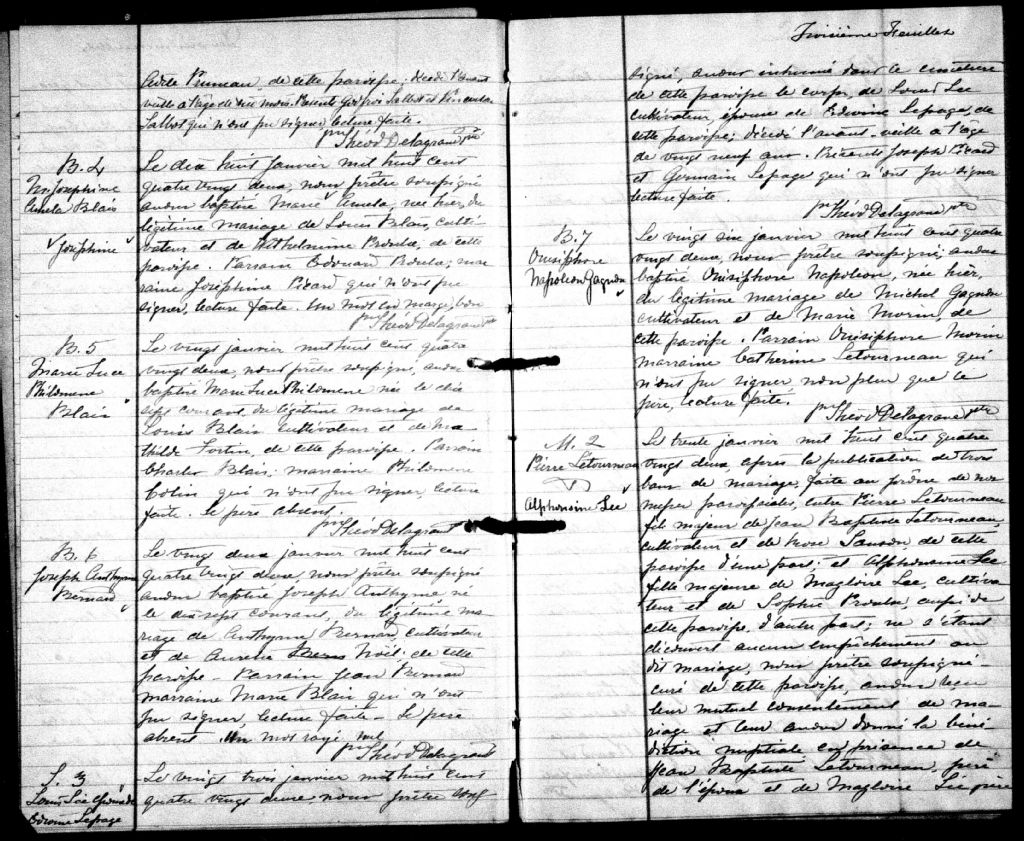 de cette paroisse, décédé l'avant
veille à l'âge de dix mois. Présents Talbot et
Talbot qui n'ont pu signer, lecture faite.
Théod Delagrave ptre
B. 4
M. Josephine
Amela Blais
Josephine
Le dix huit janvier mil huit cent
quatre vingt deux, nous prêtre soussigné
avons baptisé Marie Amela, née hier, du
légitime mariage de Louis Blais, culti-
vateur et de Philomine Proulx, de cette
paroisse. Parrain Edouard Proulx; mar-
raine Josephine Picard qui n'ont pu
signer, lecture faite. Un mot en marge, bon
Théod Delagrave ptre
B. 5
Marie Luce
Philomene
Blais
Le vingt janvier mil huit cent quatre
vingt deux, nous prêtre soussigné, avons
baptisé Marie Luce Philomene née le dix
sept courant, du légitime mariage de
Louis Blais cultivateur et de Ma-
thilde Fortin, de cette paroisse. Parrain
Charles Blais; marraine Philomene
Colin qui n'ont pu signer, lecture
faite. Le père absent.
Théod Delagrave ptre
B. 6
Joseph Anthyme
Bernard
Le vingt deux janvier mil huit cent
quatre vingt deux, nous prêtre soussigné
avons baptisé Joseph Anthyme né
le dix sept courant, du légitime ma-
riage de Anthyme Bernard, cultivateur
et de Aurelie Noël de cette
paroisse. Parrain Jean Bernard
marraine Marie Blais qui n'ont
pu signer, lecture faite. Le père
absent. Un mot rayé nul
Théod Delagrave ptre
S. 3
Louis Lee époux de
Edwine Lepage
Le vingt trois janvier mil huit cent
quatre vingt deux, nous prêtre sous
Troisième Feuillet
signé, avons inhumé dans le cimetière
de cette paroisse le corps de Louis Lee
cultivateur, époux de Edwine Lepage, de
cette paroisse; décédé l'avant-veille à l'âge
de vingt neuf ans. Présents Joseph Picard
et Germain Lepage qui n'ont pu signer
lecture faite.
Théod Delagrave ptre
B. 7
Onisiphore
Napoleon Gagnon
Le vingt six janvier mil huit cent quatre
vingt deux, nous prêtre soussigné, avons
baptisé Onisiphore Napoleon, née hier,
du légitime mariage de Michel Gagnon
cultivateur et de Marie Morin, de
cette paroisse. Parrain Onisiphore Morin
marraine Catherine Letourneau qui
n'ont pu signer, non plus que le
père, lecture faite.
Théod Delagrave ptre
M. 2
Pierre Létourneau
Alphonsine Lee
Le trente janvier mil huit cent quatre
vingt deux, après la publication de trois
bans de mariage, faite au prône de nos
messes paroissiales, entre Pierre Letourneau
fils majeur de Jean Baptiste Letourneau,
cultivateur et de Rose Samson de cette
paroisse d'une part; et Alphonsine Lee
fille majeure de Magloire Lee, cultiva-
teur et de Sophie Proulx, aussi de
cette paroisse, d'autre part; ne s'étant
découvert aucun empêchement au
dit mariage, nous prêtre soussigné
curé de cette paroisse, avons reçu
leur mutuel consentement de ma-
riage et leur avons donné la béné-
diction nuptiale en présence de
Jean Baptiste Letourneau, père
de l'époux et de Magloire Lee père